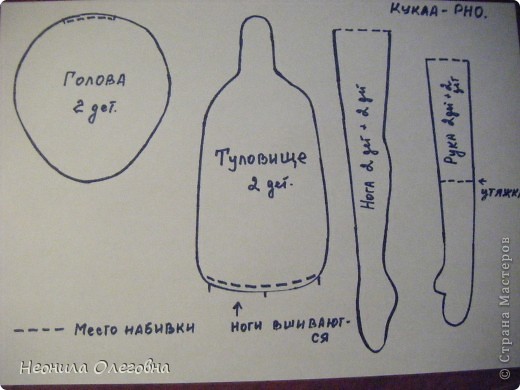 КУКЛА - РНО.
ГОЛОВА
2 дет.
ТУЛОВИЩЕ
2 дет.
НОГА 2 дет + 2 дет
РУКА 2 дет + 2 дет
УТЯЖК
МЕСТО НАБИВКИ
НОГИ ВШИВАЮТ-
СЯ
Неонила Олеговна
© Страна Мастеров